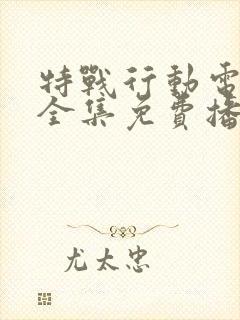 特戰行動電
全集免費播
尤太忠